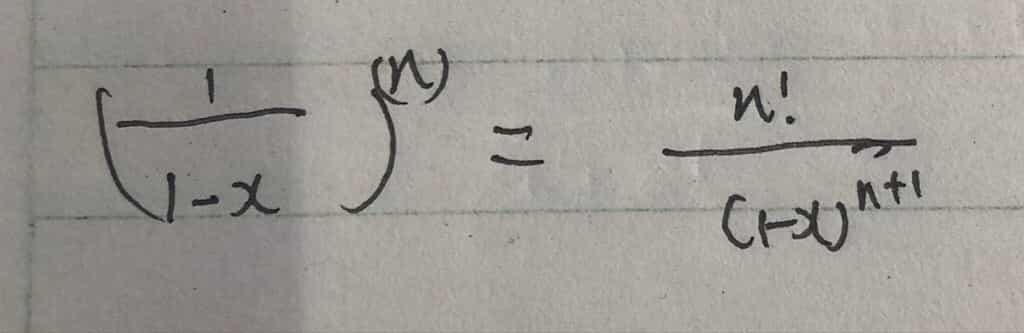 (1/(1-x))^(n) = n!/(1-x)^(n+1)